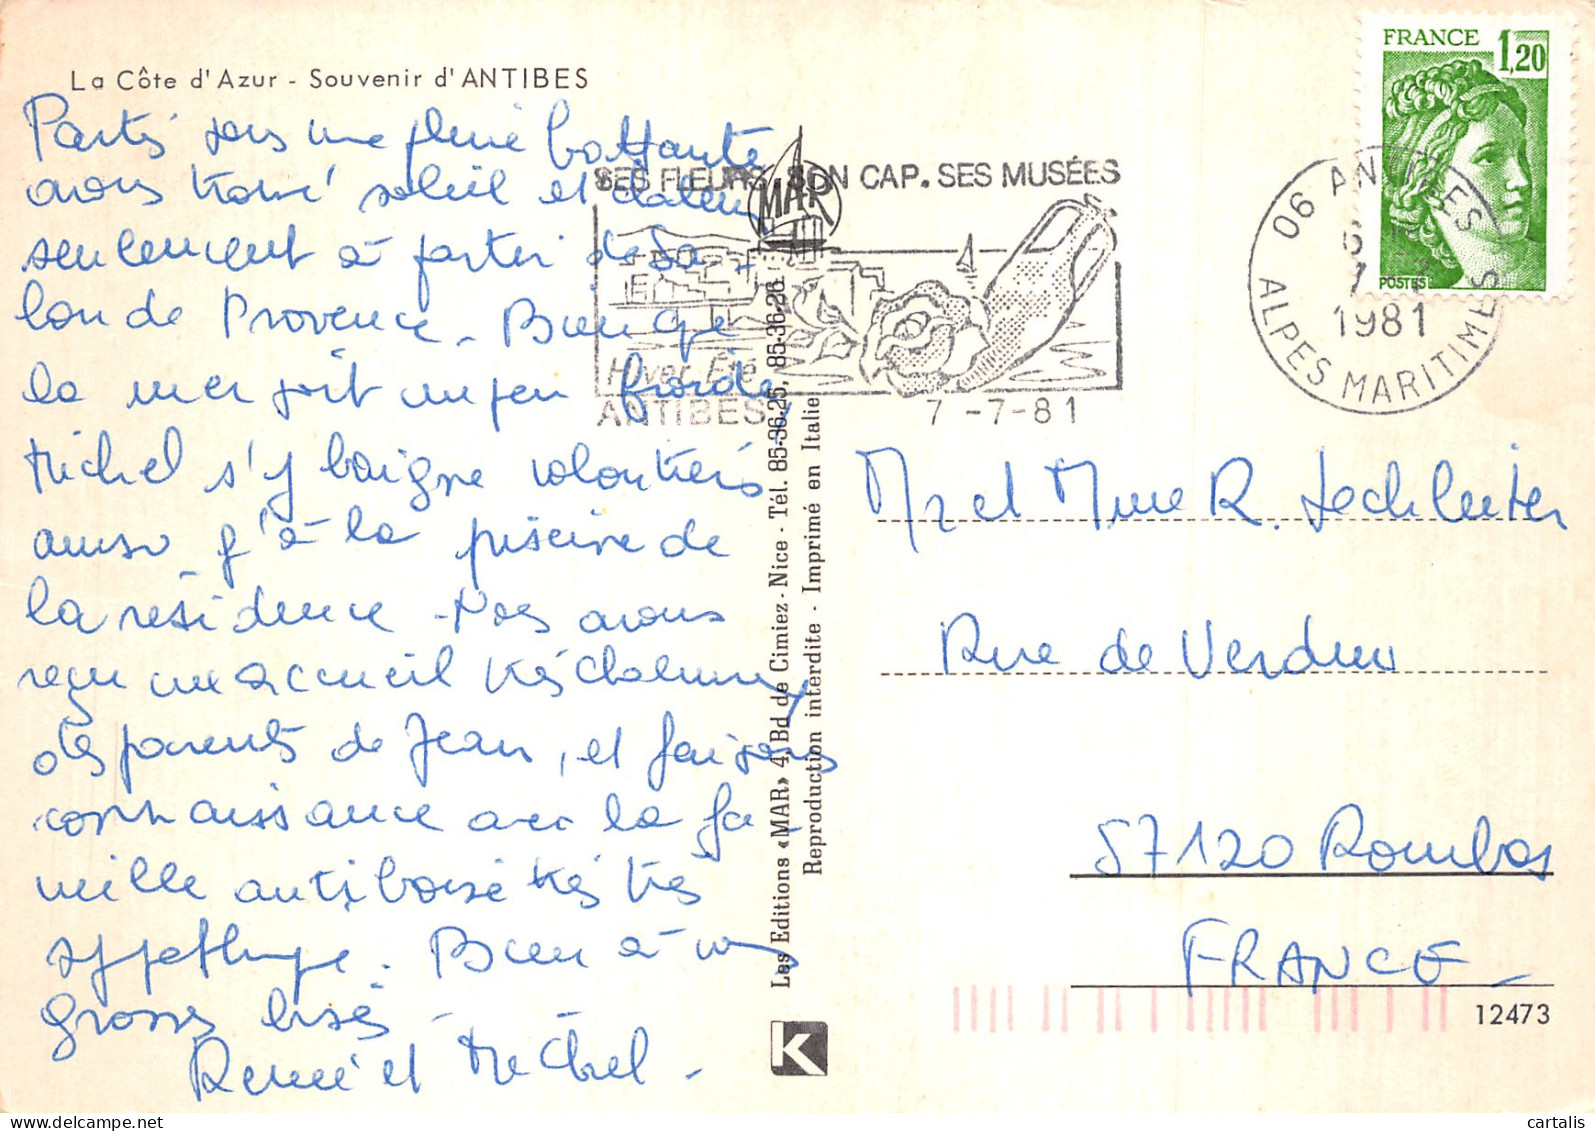 La Côte d'Azur - Souvenir d'ANTIBES
Partis sous une pluie battante
avons trouvé soleil et chaleur
seulement à partir de Sa-
lon de Provence. Bien que
la mer soit un peu froide,
Michel s'y baigne volontiers
ainsi q'à la piscine de
la résidence. Nous avons
reçu un accueil très chaleureux
des parents de Jean, et faisons
connaissance avec la fa-
mille antiboise très très
sympathique. Bien à vous
grosses bises
René et Michel.
SES FLEURS. SON CAP. SES MUSÉES
MAR
Hiver Eté
ANTIBES
7-7-81
06 ANTIBES
1981
ALPES MARITIMES
FRANCE 1,20
POSTES
Les Editions «MAR» 4, Bd de Cimiez - Nice - Tél. 85-36-25, 85-36-26
Reproduction interdite - Imprimé en Italie
Mr et Mme R. Lechleiter
Rue de Verdun
57120 Rombas
FRANCE
12473
K
cartalis
cartalis.com